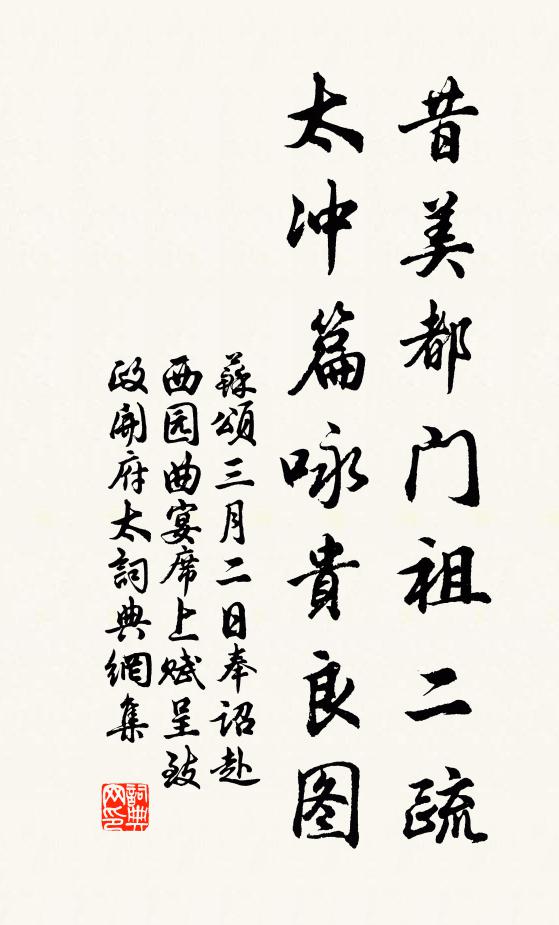 昔美都门祖二疏
太冲篇咏貴良图
蘇頌三月二日奉詔赴
西园曲宴席上赋呈致
政開府太詞典網集
詞典
网印